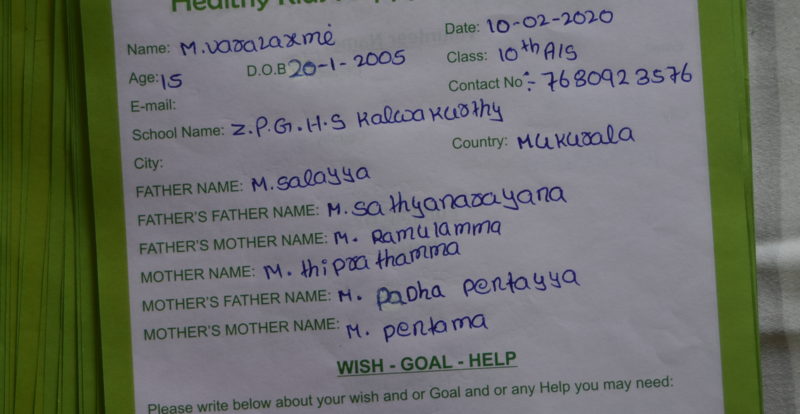 Name: M. varalaxmi Date: 10-02-2020
Age: 15 D.O.B 20-1-2005 Class: 10th A/S
E-mail: Contact No:- 7680923576
School Name: Z.P.G.H.S Kalwakurthy
City: Country: Mukurala
FATHER NAME: M. salayya
FATHER'S FATHER NAME: M. sathyanarayana
FATHER'S MOTHER NAME: M. Ramulamma
MOTHER NAME: M. thiprathamma
MOTHER'S FATHER NAME: M. paDha pentayya
MOTHER'S MOTHER NAME: M. pentama
WISH - GOAL - HELP
Please write below about your wish and or Goal and or any Help you may need: